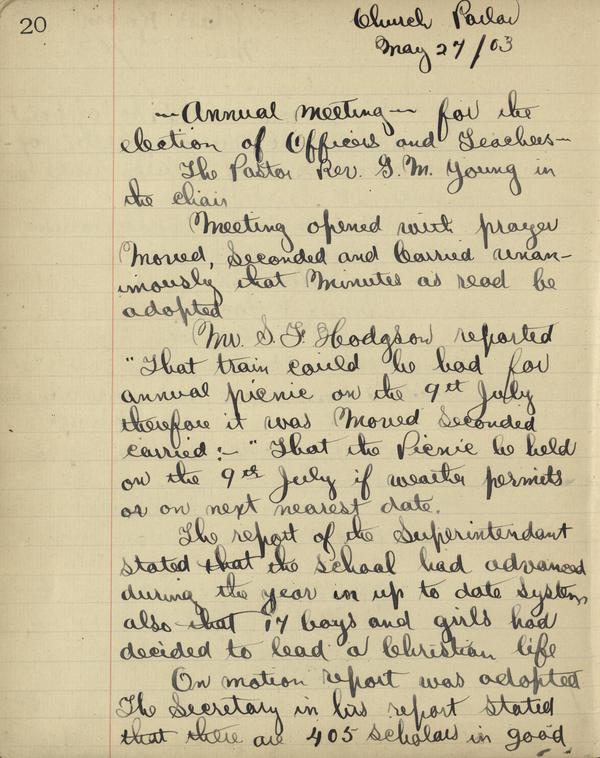 20
Church Parlor
May 27/03
— Annual meeting — for the
election of Officers and Teachers —
The Pastor Rev. G. M. Young in
the chair
Meeting opened with prayer
Moved, Seconded and Carried unan-
imously that Minutes as read be
adopted
Mr. S. F. Hodgson reported
"That train could be had for
annual picnic on the 9th July
therefore it was Moved Seconded
carried :- "That the Picnic be held
on the 9th July if weather permits
or on next nearest date.
The report of the Superintendant
stated that the school had advanced
during the year in up to date system,
also that 17 boys and girls had
decided to lead a Christian life
On motion report was adopted
The Secretary in his report stated
that there are 405 scholars in good